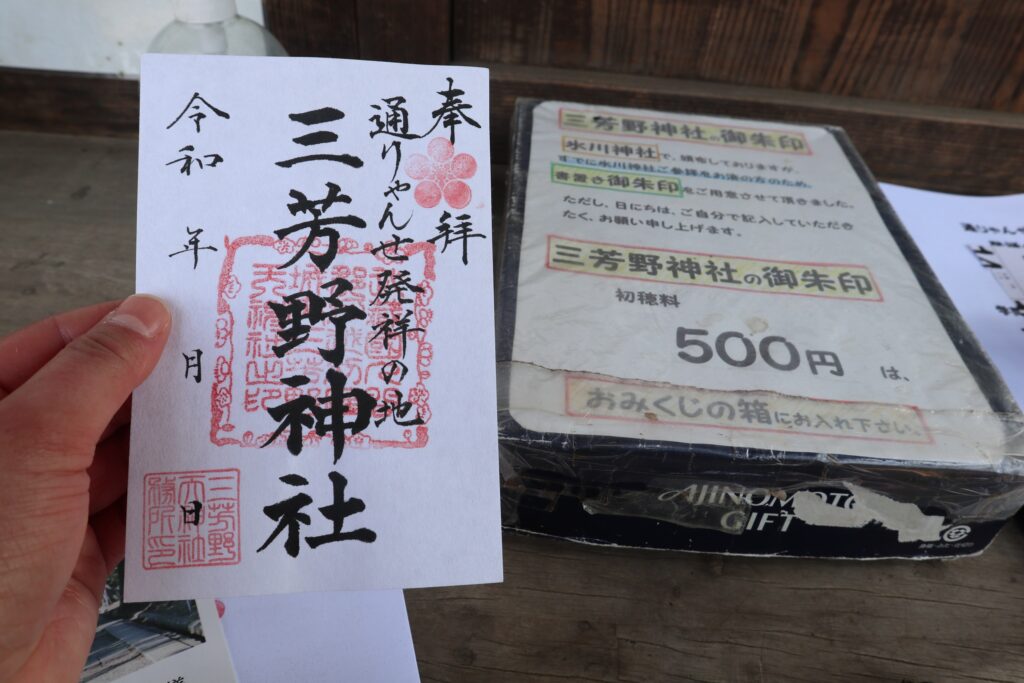 奉拝
通りゃんせ発祥の地
三芳野神社
令和 年 月 日
三芳野神社の御朱印
氷川神社で、頒布しておりますが、
すでに氷川神社ご参拝をお済の方のため、
書置き御朱印をご用意させて頂きました。
ただし、日にちは、ご自分で記入していただき
たく、お願い申し上げます。
三芳野神社の御朱印
初穂料
500円は、
おみくじの箱にお入れ下さい。
AJINOMOTO
GIFT